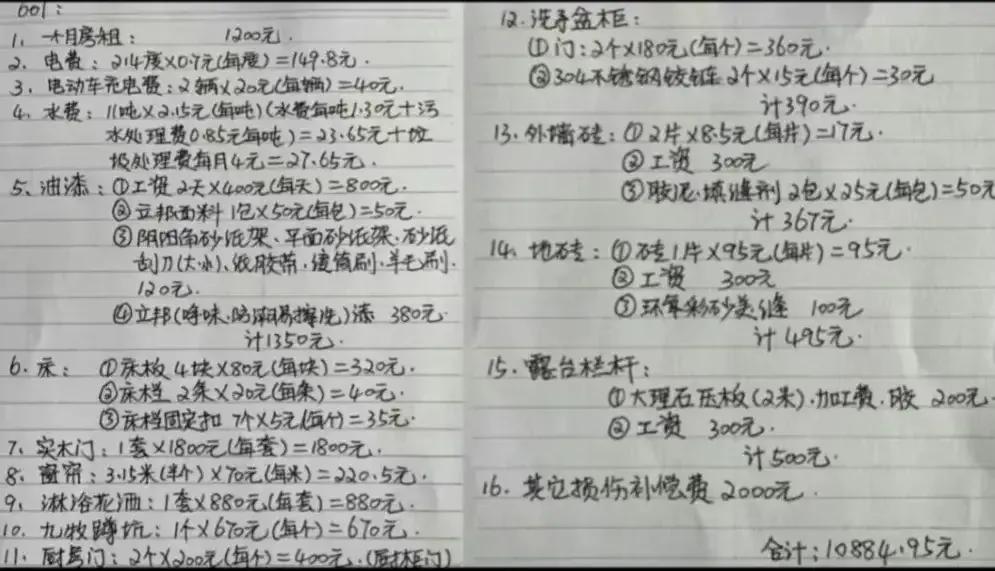 601:
1. 一个月房租: 1200元.
2. 电费: 214度×0.7元(每度)=149.8元.
3. 电动车充电费: 2辆×20元(每辆)=40元.
4. 水费: 11吨×2.15元(每吨)(水费每吨1.30元+污
水处理费0.85元每吨)=23.65元+垃
圾处理费每月4元=27.65元.
5. 油漆: ①工资 2天×400元(每天)=800元.
②立邦面料 1包×50元(每包)=50元.
③阴阳角砂纸架、平面砂纸架、砂纸
刮刀(大小)、纸胶带、滚筒刷、羊毛刷.
120元.
④立邦(呼味.防潮易擦洗)漆 380元.
计1350元.
6. 床: ①床板 4块×80元(每块)=320元.
②床档 2条×20元(每条)=40元.
③床档固定扣 7个×5元(每个)=35元.
7. 实木门: 1套×1800元(每套)=1800元.
8. 窗帘: 3.15米(半个)×70元(每米)=220.5元.
9. 淋浴花洒: 1套×880元(每套)=880元.
10. 九牧蹲坑: 1个×670元(每个)=670元.
11. 厨房门: 2个×200元(每个)=400元.(厨柜门)
12. 洗手盆柜:
①门: 2个×180元(每个)=360元.
②304不锈钢铰链 2个×15元(每个)=30元
计390元.
13. 外墙砖: ①2片×8.5元(每片)=17元.
②工资 300元
③胶泥.填缝剂 2包×25元(每包)=50元
计367元.
14. 地砖: ①砖1片×95元(每片)=95元.
②工资 300元
③环氧彩砂美缝 100元
计495元.
15. 露台栏杆:
①大理石压板(2米).加工费.胶 200元.
②工资 300元.
计500元.
16. 其它损伤补偿费 2000元.
合计: 10884.95元.